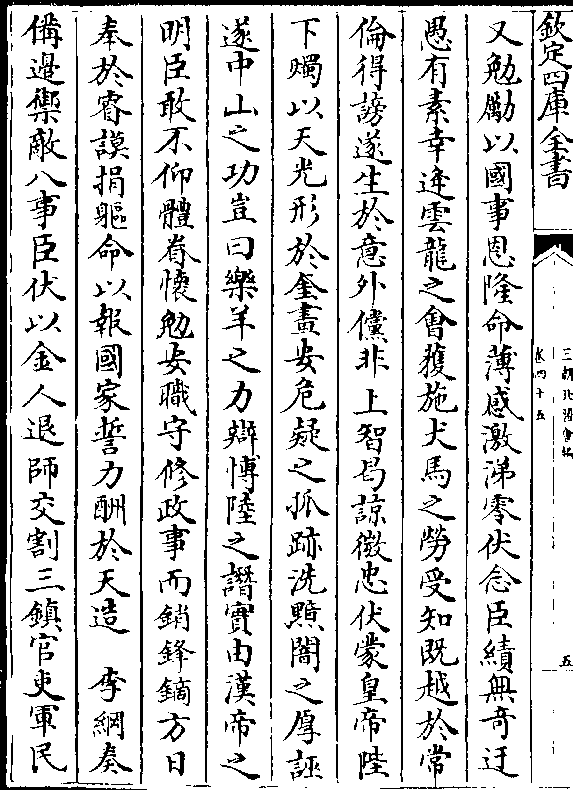 欽定四庫全書
三朝北盟會編
卷四十五
五
又勉勵以國事恩隆命薄感激涕零伏念臣績無奇迂
愚有素幸逢雲龍之會獲施犬馬之勞受知既越於常
倫得謗遂生於意外儻非上智曷諒微忠伏蒙皇帝陛
下燭以天光形於奎畫安危疑之孤跡洗黯闇之厚誣
遂中山之功豈曰樂羊之力辯博陸之譖實由漢帝之
明臣敢不仰體眷懷勉安職守修政事而銷鋒鏑方日
奉於睿謨捐軀命以報國家誓力酬於天造　李綱奏
備邊禦敵八事臣伏以金人退師交割三鎮官吏軍民